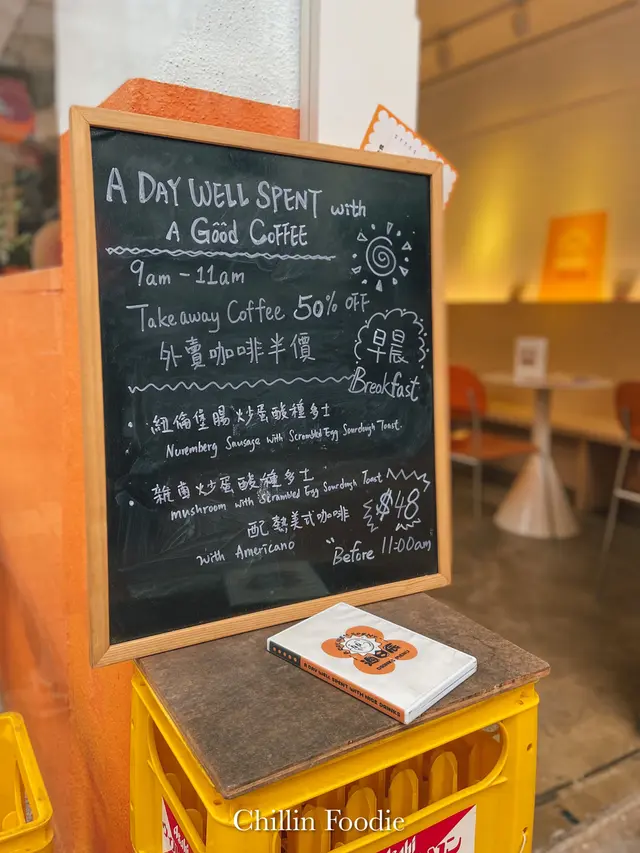 A DAY WELL SPENT with
A Good COFFEE
9am - 11am
Takeaway Coffee 50% OFF
外賣咖啡半價
早晨
Breakfast
紐倫堡腸炒蛋酸種多士
Nuremberg Sausage with Scrambled Egg Sourdough Toast
雜菌炒蛋酸種多士
mushroom with Scrambled Egg Sourdough Toast
$48
配熱美式咖啡
with Americano
Before 11:00am
A DAY WELL SPENT WITH NICE DRINKS
Chillin Foodie
Asahi